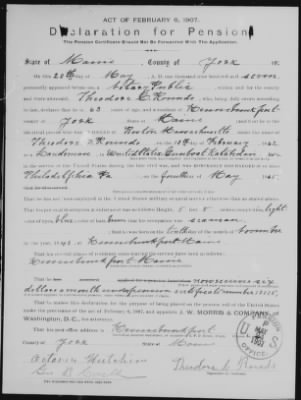 ACT OF FEBRUARY 6, 1907.
Declaration for Pension
The Pension Certificate Should Not Be Forwarded With The Application.
State of Maine, County of York
On this 20th day of May, A. D. one thousand nine hundred and seven
personally appeared before me, a Notary Public, within and for the county
and State aforesaid, Theodore L. Rounds, who, being duly sworn according
to law, declares that he is 63 years of age, and a resident of Kennebunkport
county of York, State of Maine; and that he is the
identical person who was enrolled at Boston Massachusetts under the name of
Theodore L. Rounds, on the day of February
as a Landsman, in United States Gunboat Katahdin
in the service of the United States, in the civil war, and was honorably discharged at
Philadelphia Pa, on the fourth day of May 1865.
That he has not been employed in the United States military or naval service otherwise than as stated above.
That his personal description at enlistment was as follows: Height, 5 feet 8 inches; complexion, light
color of eyes, blue; color of hair, brown; that his occupation was seaman
; that he was born on the twelfth day of November
in the year 1843 at Kennebunkport Maine
That his several places of residence since leaving the service have been as follows:
Kennebunkport Maine
That he now receives six
dollars a month under pension certificate number
That he makes this declaration for the purpose of being placed on the pension roll of the United States under the
provisions of the act of February 6, 1907, and appoints J. W. MORRIS & COMPANY,
Washington, D.C.,
That his post office address is Kennebunkport
county of York, State of Maine
Theodore L. Rounds
U. S.
MAY
1907
OFFICE